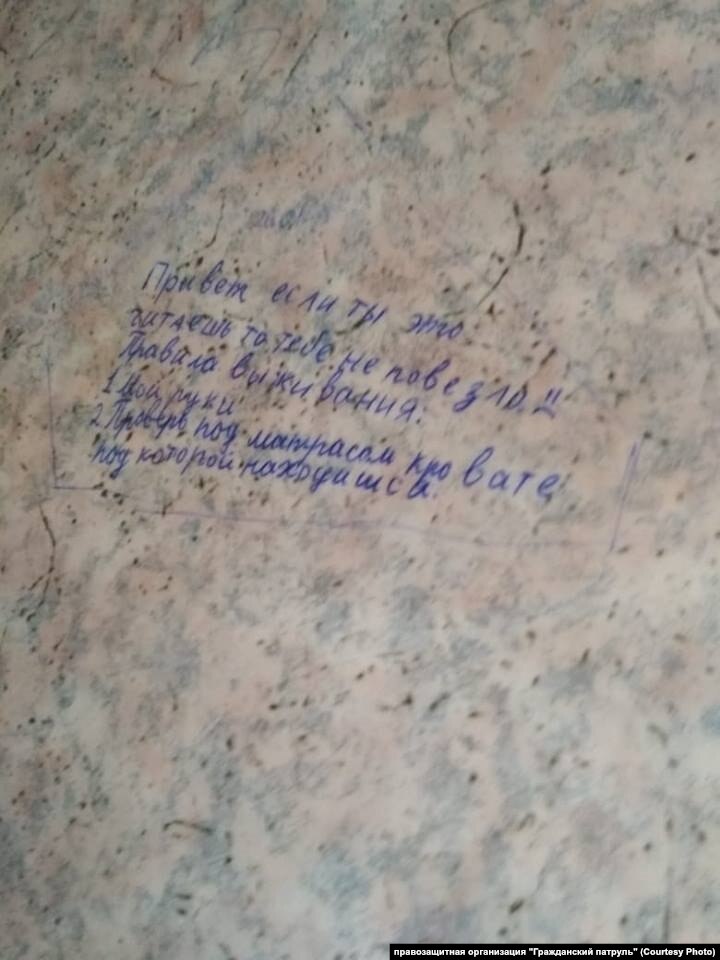 Привет если ты это
читаешь то тебе не повезло!!
Правила выживания:
1 Мой руки
2 Проверь под матрасом кровате
под которой находишься.
правозащитная организация "Гражданский патруль" (Courtesy Photo)